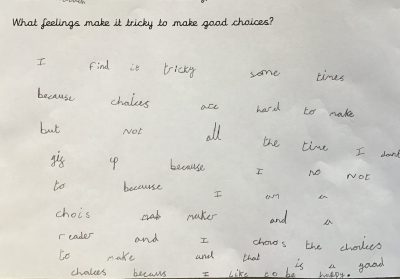 What feelings make it tricky to make good choices?
I find it tricky some times
because chaices are hard to make
but not all the time I dont
giv up because I no not
to because I am a
chois maker and a
reader and I choos the choices
to make and that is a good
choices becaus I like to be happy.